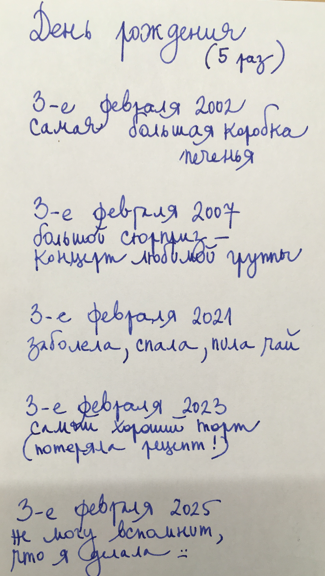 День рождения
(5 раз)
3-е февраля 2002
самая большая коробка
печенья
3-е февраля 2007
большой сюрприз –
концерт любимой группы
3-е февраля 2021
заболела, спала, пила чай
3-е февраля 2023
самый хороший торт
(потеряла рецепт!)
3-е февраля 2025
не могу вспомнит,
что я делала :(